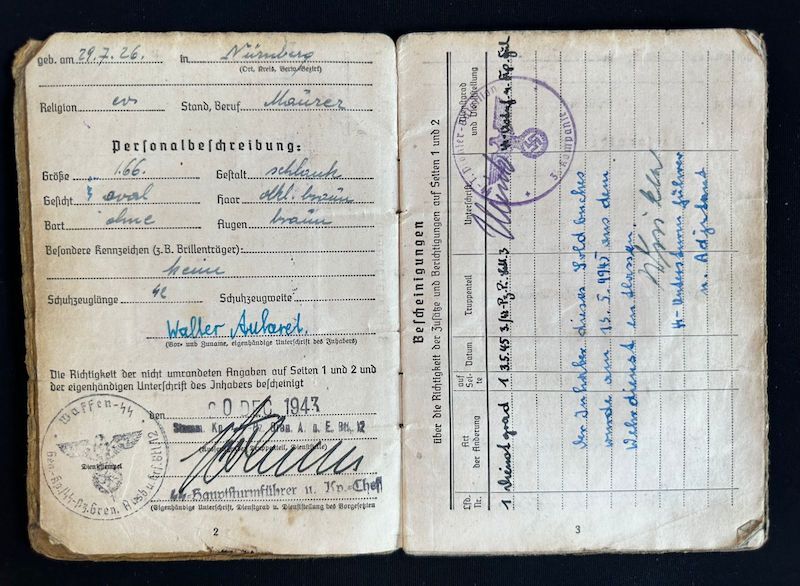 geb. am 29.7.26. in Nürnberg
(Ort, Kreis, Verw.-Bezirk)
Religion evs Stand, Beruf Maurer
Personalbeschreibung:
Größe 1.66. Gestalt schlank
Gesicht oval Haar dkl. braun
Bart ohne Augen braun
Besondere Kennzeichen (z.B. Brillenträger):
keine
Schuhzeuglänge 42 Schuhzeugweite
Walter
(Vor- und Zuname, eigenhändige Unterschrift des Inhabers)
Die Richtigkeit der nicht umrandeten Angaben auf Seiten 1 und 2
und der eigenhändigen Unterschrift des Inhabers bescheinigt
den 20 DEZ. 1943
Stamm. Kp. Pz. Gren. A. u. E. Btl. 12
Waffen-SS
Dienststempel
SS-Hauptsturmführer u. Kp.-Chef
(Eigenhändige Unterschrift, Dienstgrad u. Dienststellung des Vorgesetzten
2
Bescheinigungen
über die Richtigkeit der Zusätze und Berichtigungen auf Seiten 1 und 2
Lfd. Nr. Art der Änderung auf Seite Datum Truppenteil Unterschrift, Dienstgrad und Dienststellung
1 Dienstgrad 1 3.5.45
3. Kompanie
Der Inhaber dieses Soldbuches
wurde am 13.5.1945 aus dem
Wehrdienst entlassen.
SS-Untersturmführer
u. Adjutant
3